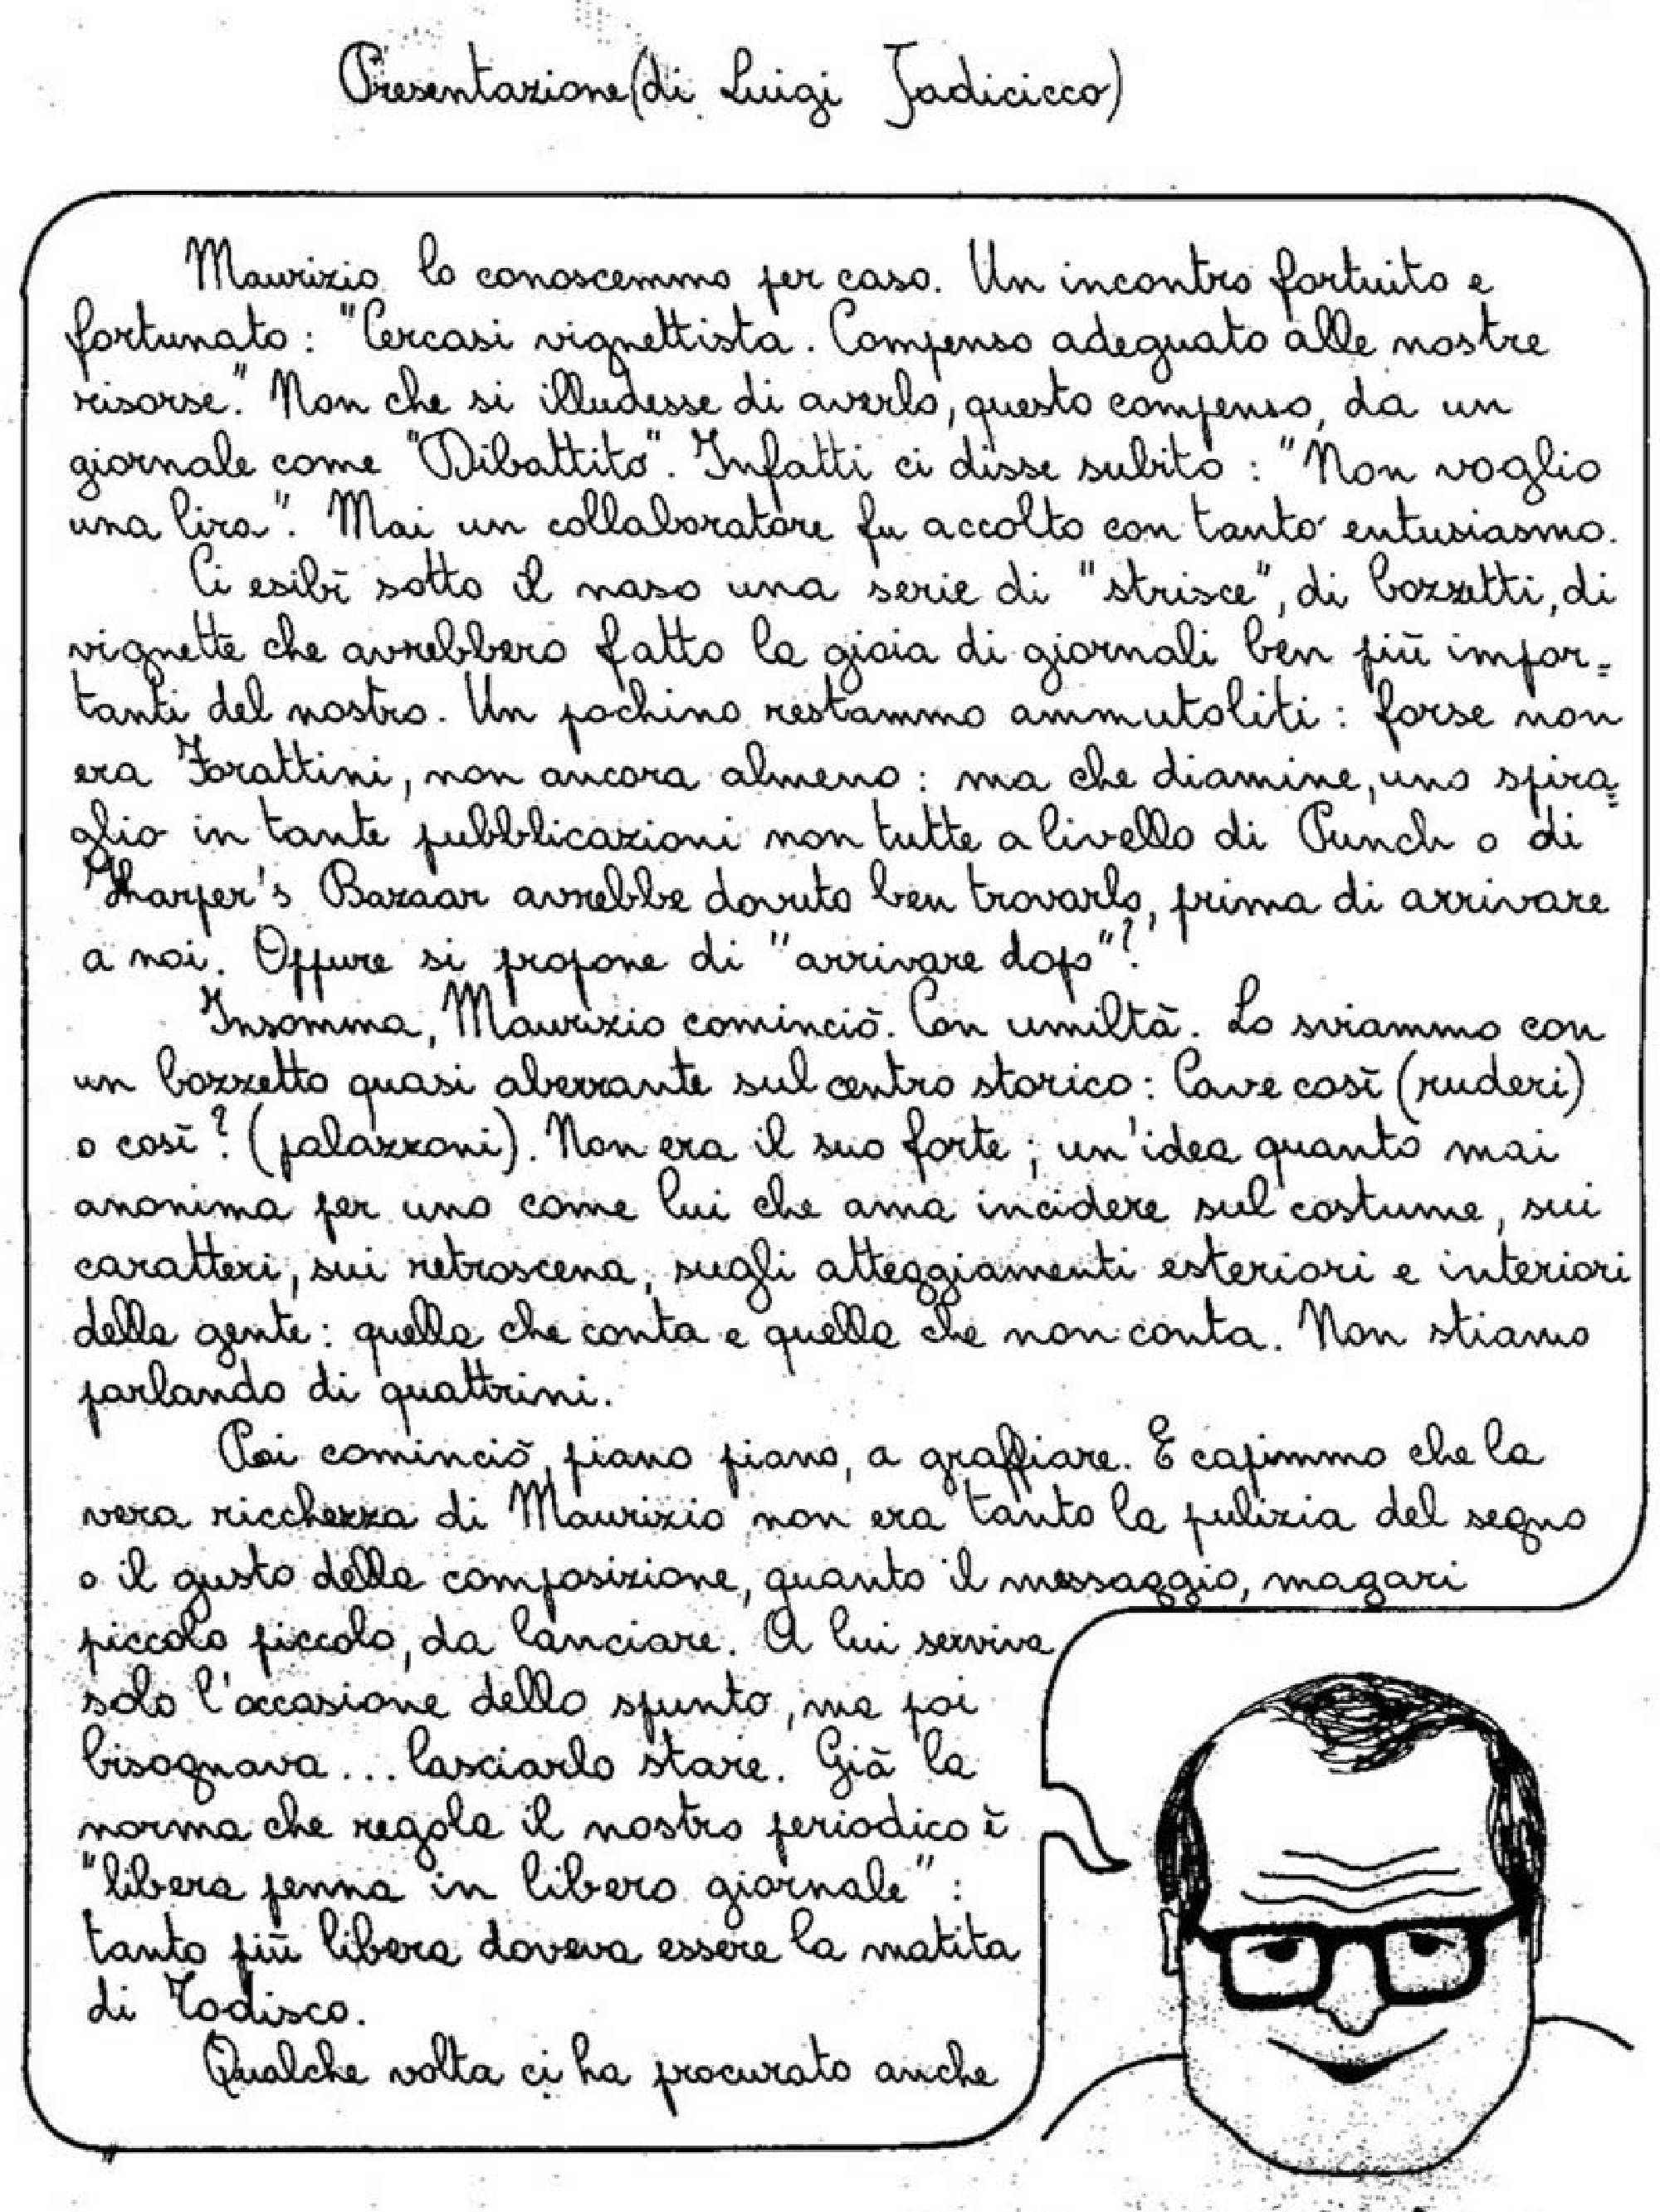 Presentazione (di Luigi Iadicicco)
Maurizio lo conoscemmo per caso. Un incontro fortuito e
fortunato: "Cercasi vignettista. Compenso adeguato alle nostre
risorse". Non che si illudesse di averlo, questo compenso, da un
giornale come "Dibattito". Infatti ci disse subito: "Non voglio
una lira". Mai un collaboratore fu accolto con tanto entusiasmo.
Ci esibì sotto il naso una serie di "strisce", di bozzetti, di
vignette che avrebbero fatto la gioia di giornali ben più impor=
tanti del nostro. Un pochino restammo ammutoliti: forse non
era Forattini, non ancora almeno: ma che diamine, uno spira=
glio in tante pubblicazioni non tutte a livello di Punch o di
Harper's Bazaar avrebbe dovuto ben trovarlo, prima di arrivare
a noi. Oppure si propone di "arrivare dopo"?
Insomma, Maurizio cominciò. Con umiltà. Lo sviammo con
un bozzetto quasi aberrante sul centro storico: Cave così (ruderi)
o così? (palazzoni). Non era il suo forte; un'idea quanto mai
anonima per uno come lui che ama incidere sul costume, sui
caratteri, sui retroscena, sugli atteggiamenti esteriori e interiori
della gente: quella che conta e quella che non conta. Non stiamo
parlando di quattrini.
Poi cominciò, piano piano, a graffiare. E capimmo che la
vera ricchezza di Maurizio non era tanto la pulizia del segno
o il gusto della composizione, quanto il messaggio, magari
piccolo piccolo, da lanciare. A lui serviva
solo l'occasione dello spunto, ma poi
bisognava... lasciarlo stare. Già la
norma che regola il nostro periodico è
"libera penna in libero giornale":
tanto più libera doveva essere la matita
di Todisco.
Qualche volta ci ha procurato anche